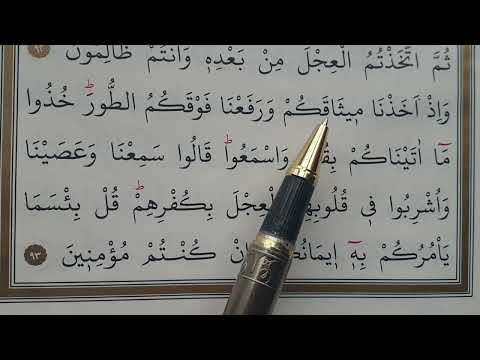 ثُمَّ اتَّخَذْتُمُ الْعِجْلَ مِنْ بَعْدِهٖ وَاَنْتُمْ ظَالِمُونَ
وَاِذْ اَخَذْنَا مٖيثَاقَكُمْ وَرَفَعْنَا فَوْقَكُمُ الطُّورَۜ خُذُوا
مَٓا اٰتَيْنَاكُمْ وَاسْمَعُواۜ قَالُوا سَمِعْنَا وَعَصَيْنَا
وَاُشْرِبُوا فٖي قُلُوبِهِمُ الْعِجْلَ بِكُفْرِهِمْۜ قُلْ بِئْسَمَا
يَاْمُرُكُمْ بِهٖٓ اٖيمَانُكُمْ اِنْ كُنْتُمْ مُؤْمِنٖينَ ٩٣